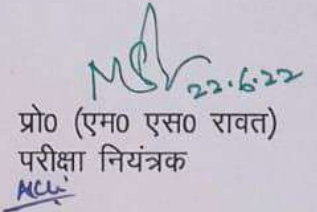 22.6.22
प्रो0 (एम0 एस0 रावत)
परीक्षा नियंत्रक